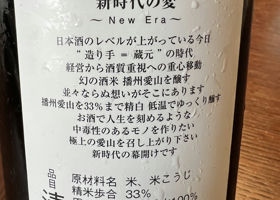 新時代の愛
～ New Era ～
日本酒のレベルが上がっている今日
“ 造り手 = 蔵元 ” の時代
経営から酒質重視への重心移動
幻の酒米 播州愛山を醸す
並々ならぬ想いがそこにあります
播州愛山を33％まで精白 低温でゆっくり醸す
お酒で人生を刻めるような
中毒性のあるモノを作りたい
極上の愛山を召し上がり下さい
新時代の幕開けです
品目
原材料名 米、米こうじ
精米歩合 33％
100％